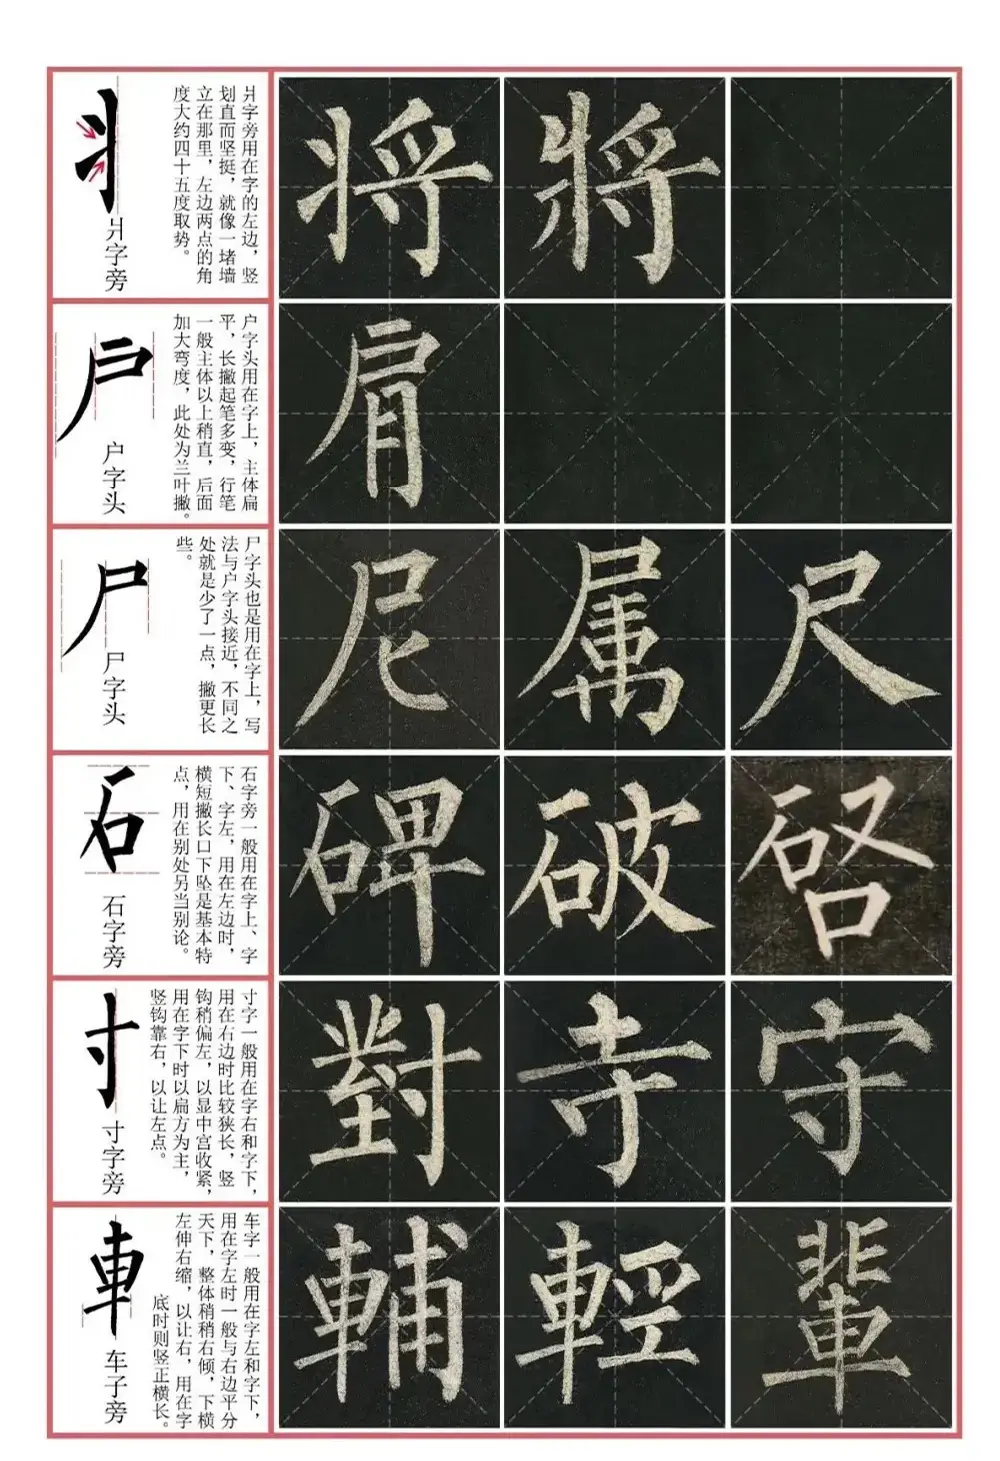 丬
丬字旁
丬字旁用在字的左边，竖
划直而坚挺，就像一堵墙
立在那里，左边两点的角
度大约四十五度取势。
将 將
户
户字头
户字头用在字上，主体扁
平，长撇起笔多变，行笔
一般主体以上稍直，后面
加大弯度，此处为兰叶撇。
肩
尸
尸字头
尸字头也是用在字上，写
法与户字头接近，不同之
处就是少了一点，撇更长
些。
尼 属 尺
石
石字旁
石字旁一般用在字上、字
下、字左，用在左边时，
横短撇长口下坠是基本特
点，用在别处另当别论。
碑 破
寸
寸字旁
寸字一般用在字右和字下，
用在右边时比较狭长，竖
钩稍偏左，以显中宫收紧，
用在字下时以扁方为主，
竖钩靠右，以让左点。
對 寺 守
車
车子旁
车字一般用在字左和字下，
用在字左时一般与右边平分
天下，整体稍稍右倾，下横
左伸右缩，以让右，用在字
底时则竖正横长。
輔 輕 輩